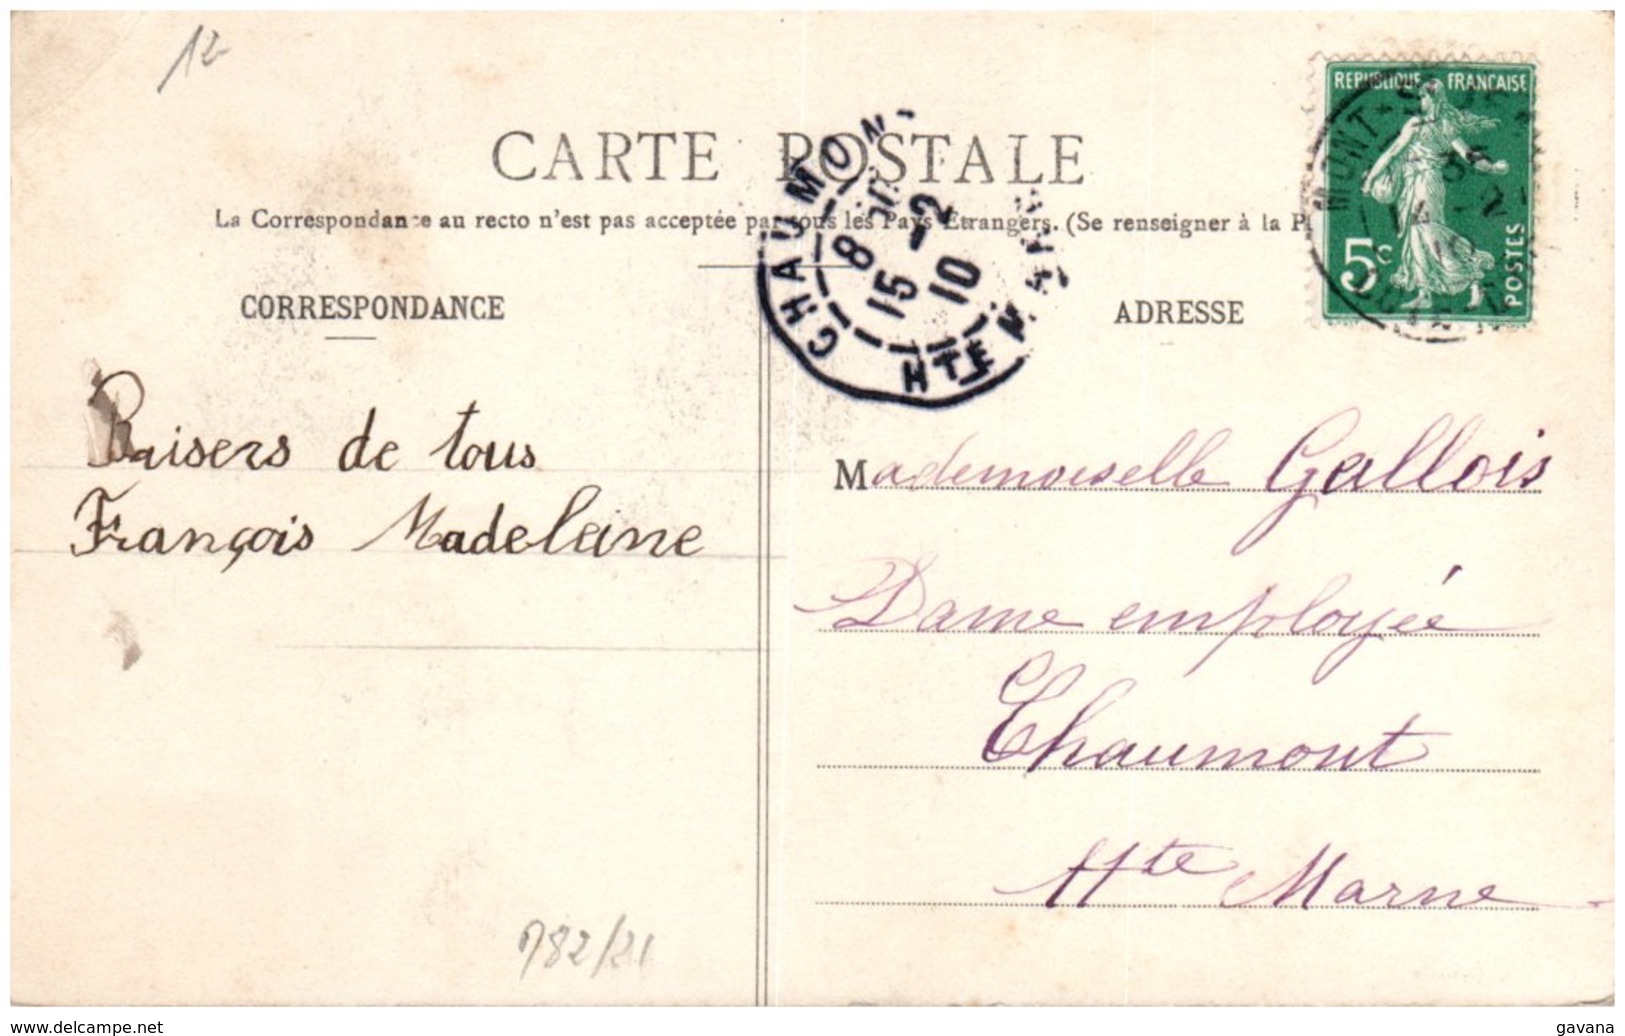 12
CARTE POSTALE
La Correspondance au recto n'est pas acceptée par tous les Pays Etrangers. (Se renseigner à la P
REPUBLIQUE FRANÇAISE
5c
POSTES
MONT
CHAUMONT
8
15 -2
10
HTE MARNE
CORRESPONDANCE
ADRESSE
Baisers de tous
François Madeleine
Mademoiselle Gallois
Dame employée
Chaumont
Hte Marne
782/21
www.delcampe.net
gavana